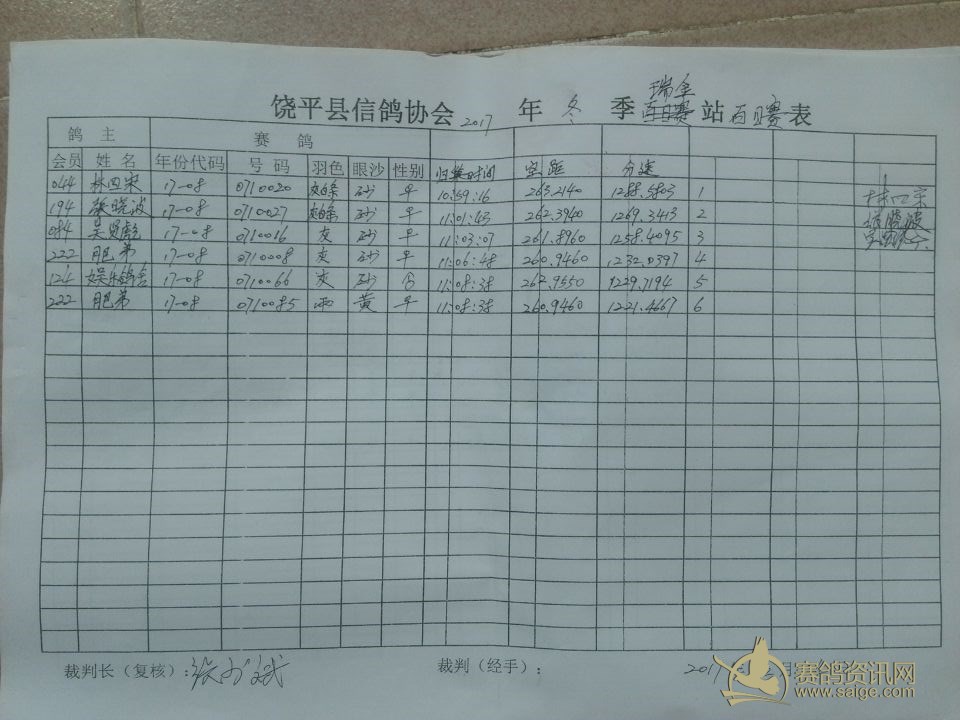 瑞金
饶平县信鸽协会 2017 年 冬 季 百日赛 站 百日赛 表
鸽 主 赛 鸽
会员 姓 名 年份代码 号 码 羽色 眼沙 性别 归巢时间 空距 分速
044 林四宋 17-08 0710020 砂 平 10:59:16 263.2140 1288.5803 1 林四宋
194 张晓波 17-08 0710027 砂 平 11:01:43 262.3940 1269.3413 2 张晓波
084 吴贤彪 17-08 0710016 灰 砂 平 11:03:07 261.8960 1258.4095 3
222 肥弟 17-08 0710008 灰 砂 平 11:06:48 260.9460 1232.0397 4
124 娱乐鸽舍 17-08 0710066 灰 砂 否 11:08:38 262.9550 1229.7194 5
222 肥弟 17-08 0710085 雨 黄 平 11:08:38 260.9460 1221.4667 6
裁判长（复核）: 裁判（经手）: 2017 月
赛鸽资讯网
www.saige.com